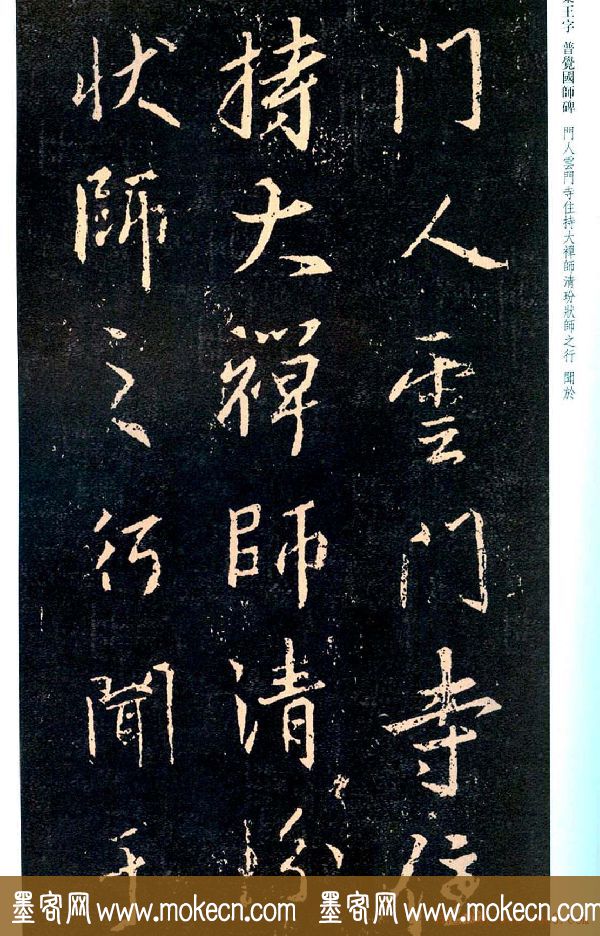 王字 普覺國師碑 門人雲門寺住持大禪師清玢狀師之行 聞於
門人雲門寺住
持大禪師清玢
狀師之行聞于
墨客网 www.mokecn.com 墨客网 www.mokecn.com